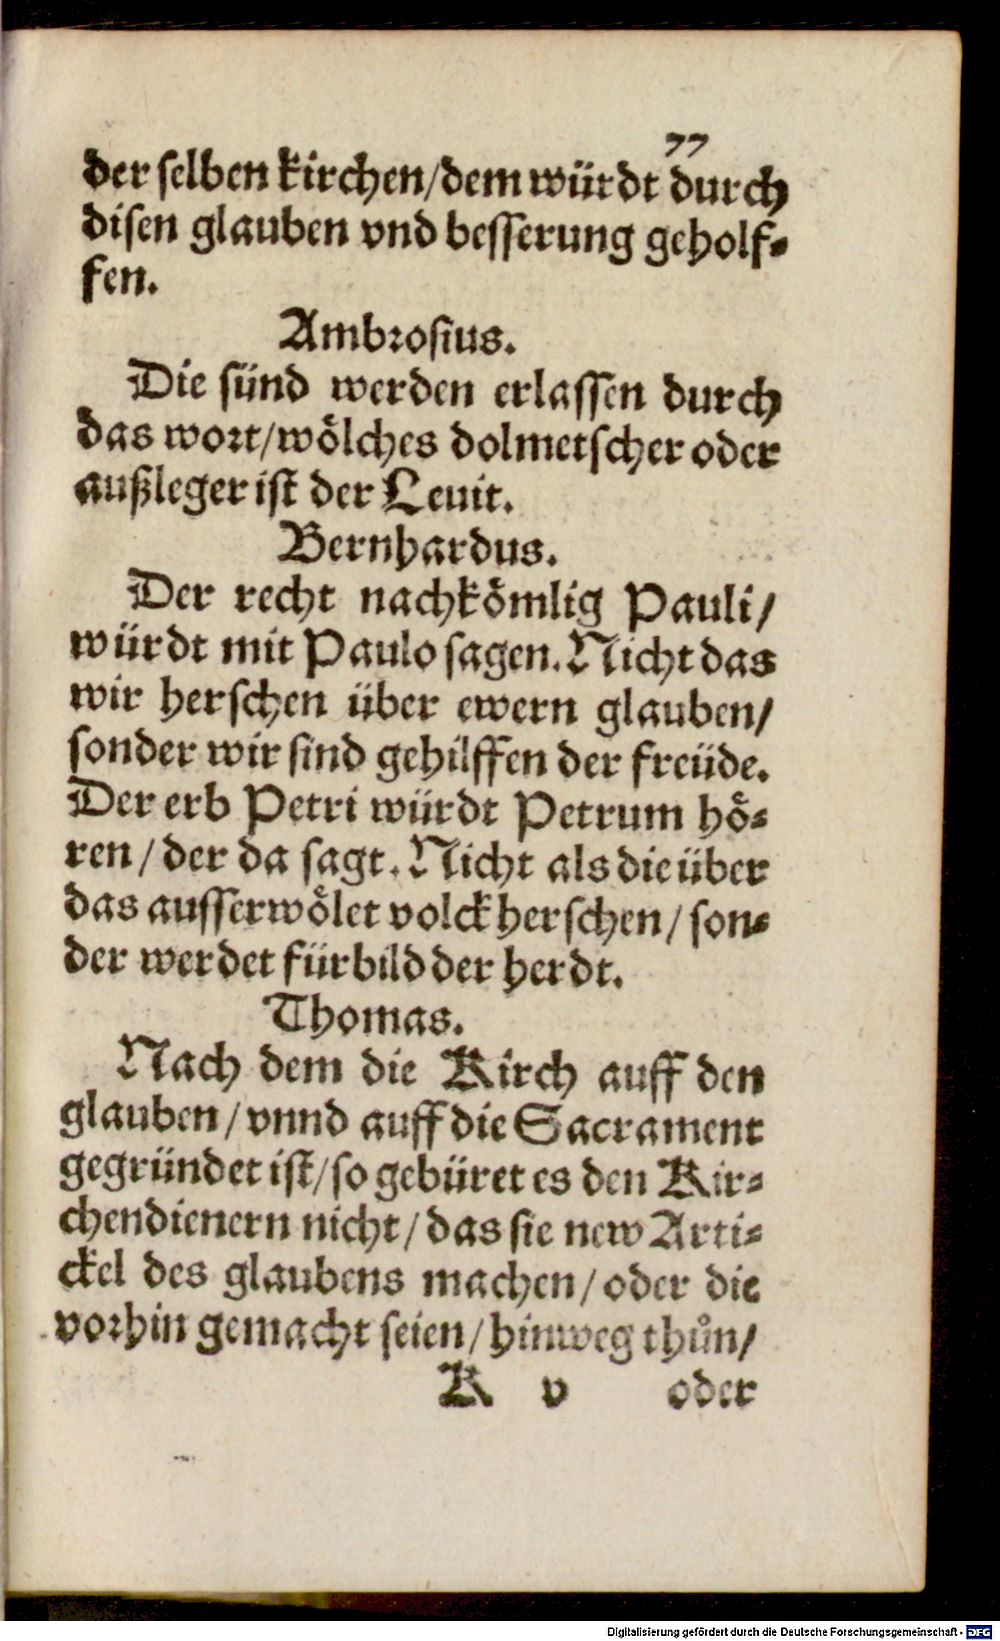 77
der selben kirchen/dem würdt durch
disen glauben vnd besserung geholf⸗
fen.
Ambrosius.
Die sünd werden erlassen durch
das wort/wölches dolmetscher oder
außleger ist der Leuit.
Bernhardus.
Der recht nachkömlig Pauli/
würdt mit Paulo sagen. Nicht das
wir herschen über ewern glauben/
sonder wir sind gehilffen der freüde.
Der erb Petri würdt Petrum hö⸗
ren/der da sagt. Nicht als die über
das ausserwölet volck herschen/son⸗
der werdet fürbild der herdt.
Thomas.
Nach dem die Kirch auff den
glauben/vnnd auff die Sacrament
gegründet ist/so gebüret es den Kir⸗
chendienern nicht/das sie new Arti⸗
ckel des glaubens machen/oder die
vorhin gemacht seien/hinweg thůn/
K v oder
Digitalisierung gefördert durch die Deutsche Forschungsgemeinschaft - DFG